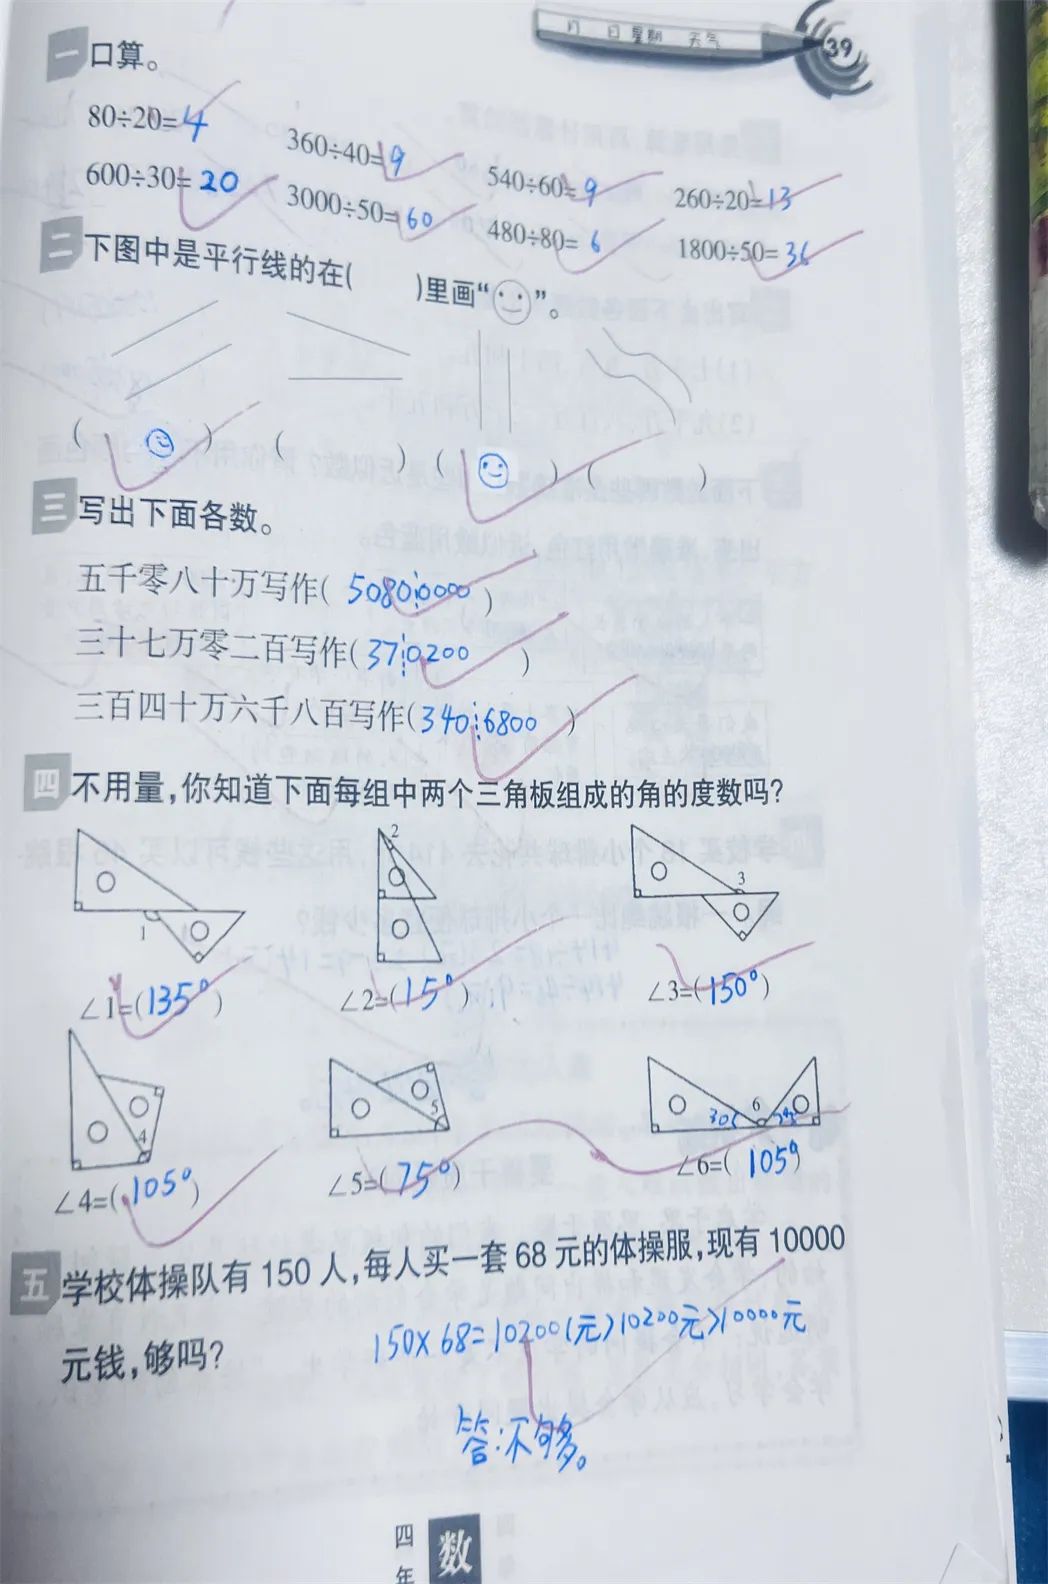 月 日 星期 天气
39
一 口算。
80÷20=4 360÷40=9 540÷60=9 260÷20=13
600÷30=20 3000÷50=60 480÷80=6 1800÷50=36
二 下图中是平行线的在( )里画“ ”。
( ) ( ) ( ) ( )
三 写出下面各数。
五千零八十万写作( 50800000 )
三十七万零二百写作(370200 )
三百四十万六千八百写作(3406800 )
四 不用量,你知道下面每组中两个三角板组成的角的度数吗?
1 2 3
∠1=(135°) ∠2=(15°) ∠3=(150°)
4 5 30° 6
∠4=(105°) ∠5=(75°) ∠6=(105°)
五 学校体操队有150人,每人买一套68元的体操服,现有10000
元钱,够吗? 150×68=10200(元)10200元>10000元
答:不够。
四年 数